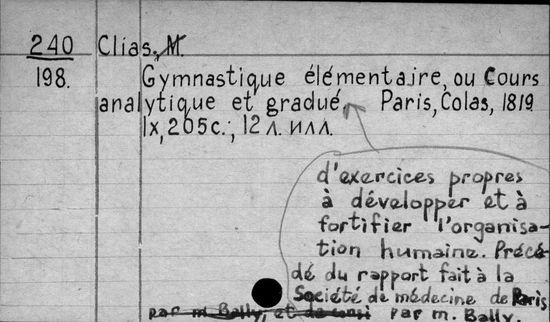 240 Clias, M.
198. Gymnastique élémentaire, ou Cours
analytique et gradué. Paris, Colas, 1819.
IX, 205 с.; 12 л. илл.
d'exercices propres
à développer et à
fortifier l'organisa-
tion humaine. Précé-
dé du rapport fait à la
Société de médecine de Paris
par M. Bally, et de consi par M. Bally.